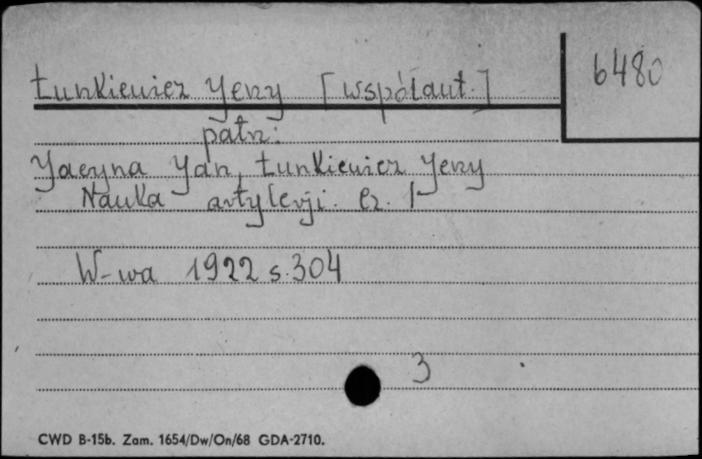 6480
Łunkiewicz Jerzy [współaut.]
patrz:
Jacyna Jan, Łunkiewicz Jerzy
Nauka artylerji. Cz. I
W-wa 1922 s. 304
3
CWD B-15b. Zam. 1654/Dw/On/68 GDA-2710.